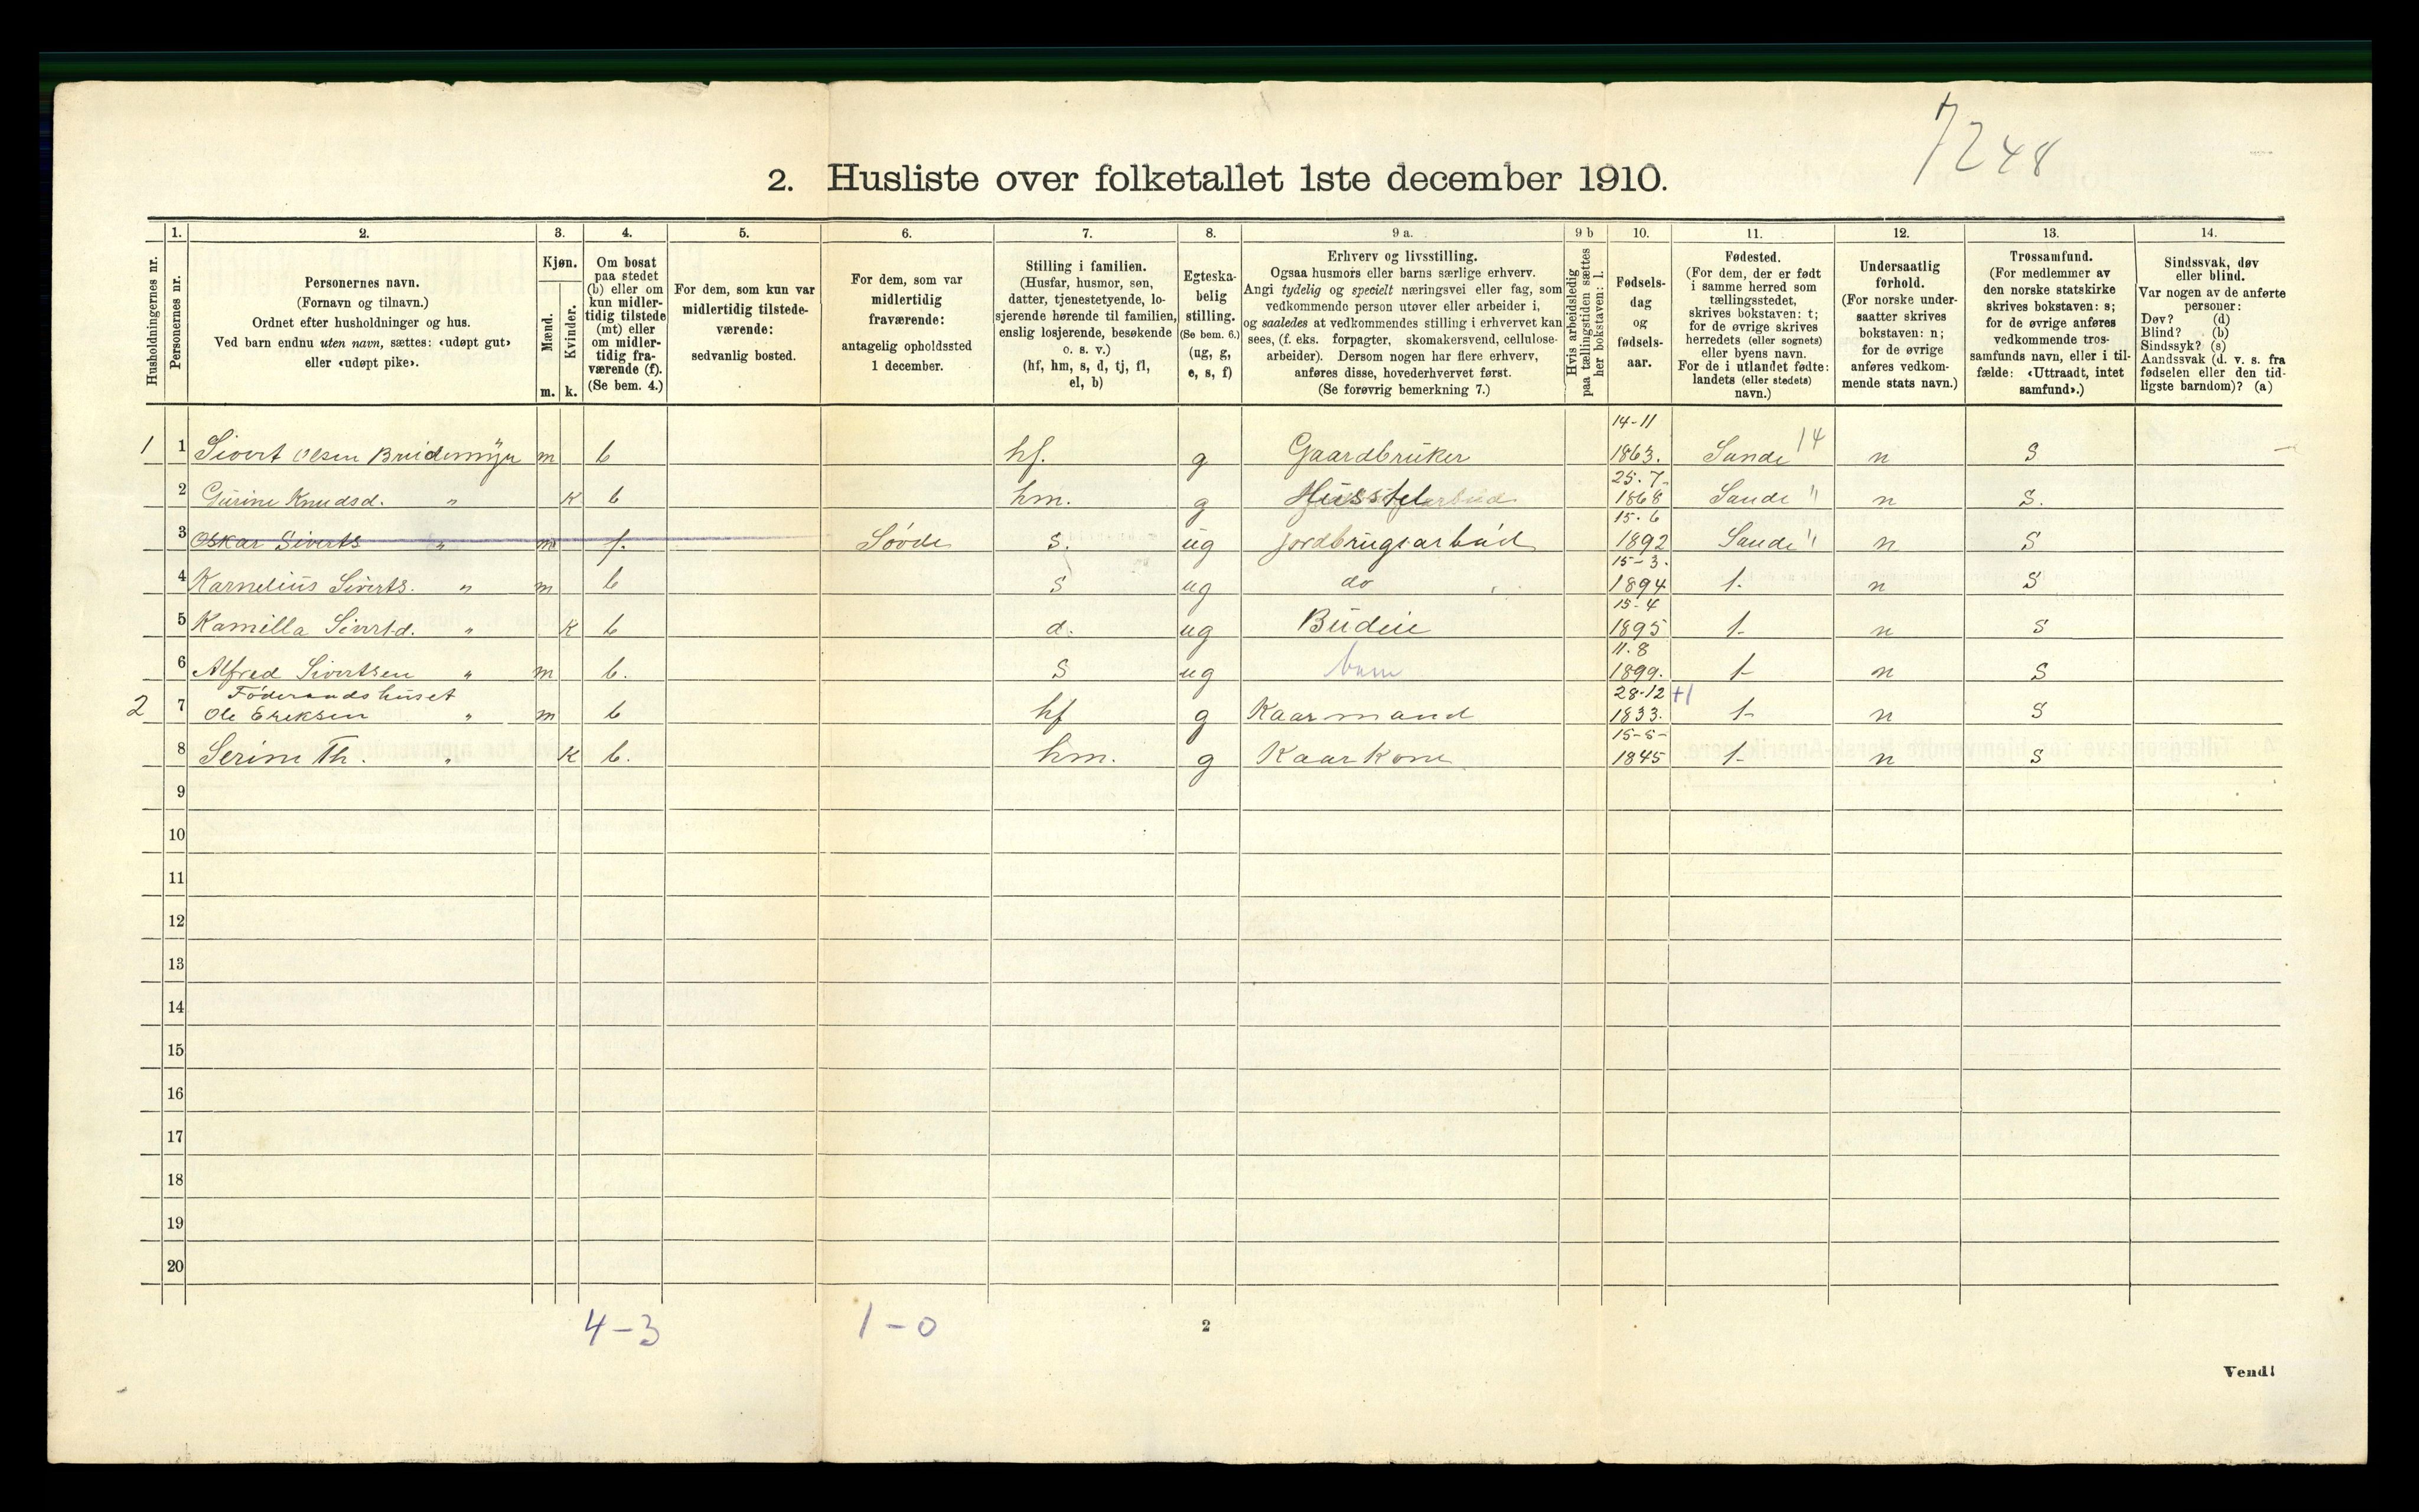 7248
2. Husliste over folketallet 1ste december 1910.
Husholdningernes nr.
1.
Personernes nr.
2.
Personernes navn.
(Fornavn og tilnavn.)
Ordnet efter husholdninger og hus.
Ved barn endnu uten navn, sættes: «udøpt gut»
eller «udøpt pike».
3.
Kjøn.
Mænd.
Kvinder.
m. k.
4.
Om bosat
paa stedet
(b) eller om
kun midler-
tidig tilstede
(mt) eller
om midler-
tidig fra-
værende (f).
(Se bem. 4.)
5.
For dem, som kun var
midlertidig tilstede-
værende:
sedvanlig bosted.
6.
For dem, som var
midlertidig
fraværende:
antagelig opholdssted
1 december.
7.
Stilling i familien.
(Husfar, husmor, søn,
datter, tjenestetyende, lo-
sjerende hørende til familien,
enslig losjerende, besøkende
o. s. v.)
(hf, hm, s, d, tj, fl,
el, b)
8.
Egteska-
belig
stilling.
(Se bem. 6.)
(ug, g,
e, s, f)
9 a.
Erhverv og livsstilling.
Ogsaa husmors eller barns særlige erhverv.
Angi tydelig og specielt næringsvei eller fag, som
vedkommende person utøver eller arbeider i,
og saaledes at vedkommendes stilling i erhvervet kan
sees, (f. eks. forpagter, skomakersvend, cellulose-
arbeider). Dersom nogen har flere erhverv,
anføres disse, hovederhvervet først.
(Se forøvrig bemerkning 7.)
9 b
Hvis arbeidsledig
paa tællingstiden sættes
her bokstaven: l.
10.
Fødsels-
dag
og
fødsels-
aar.
11.
Fødested.
(For dem, der er født
i samme herred som
tællingsstedet,
skrives bokstaven: t;
for de øvrige skrives
herredets (eller sognets)
eller byens navn.
For de i utlandet fødte:
landets (eller stedets)
navn.)
12.
Undersaatlig
forhold.
(For norske under-
saatter skrives
bokstaven: n;
for de øvrige
anføres vedkom-
mende stats navn.)
13.
Trossamfund.
(For medlemmer av
den norske statskirke
skrives bokstaven: s;
for de øvrige anføres
vedkommende tros-
samfunds navn, eller i til-
fælde: «Uttraadt, intet
samfund».)
14.
Sindssvak, døv
eller blind.
Var nogen av de anførte
personer:
Døv? (d)
Blind? (b)
Sindssyk? (s)
Aandssvak (d. v. s. fra
fødselen eller den tid-
ligste barndom)? (a)
1 1 Sivert Olsen m b hf. g Gaardbruker 14-11 1863. Sande 14 n S
2 Gurine Knudsd. " k b hm. g Husstel 25.7- 1868 Sande " n S.
3 Oskar Siverts " m f. Søvde S. ug jordbrugsarbeid 15.6 1892 Sande " n S
4 Karnelius Siverts. " m b S ug do 15-3. 1894 t. n S
5 Kamilla Sivertd. " k b d. ug Budeie 15-4 1895 t- n S
6 Alfred Sivertsen " m b. S ug barn 11.8 1899. t- n S
Föderaadshuset
2 7 Ole Eriksen " m b hf g Kaarmand 28-12 +1 1833. t- n S
8 Serine Th. " k b. hm. g Kaarkone 15-5- 1845 t- n S
9
10
11
12
13
14
15
16
17
18
19
20
4-3 1-0
2
Vend!